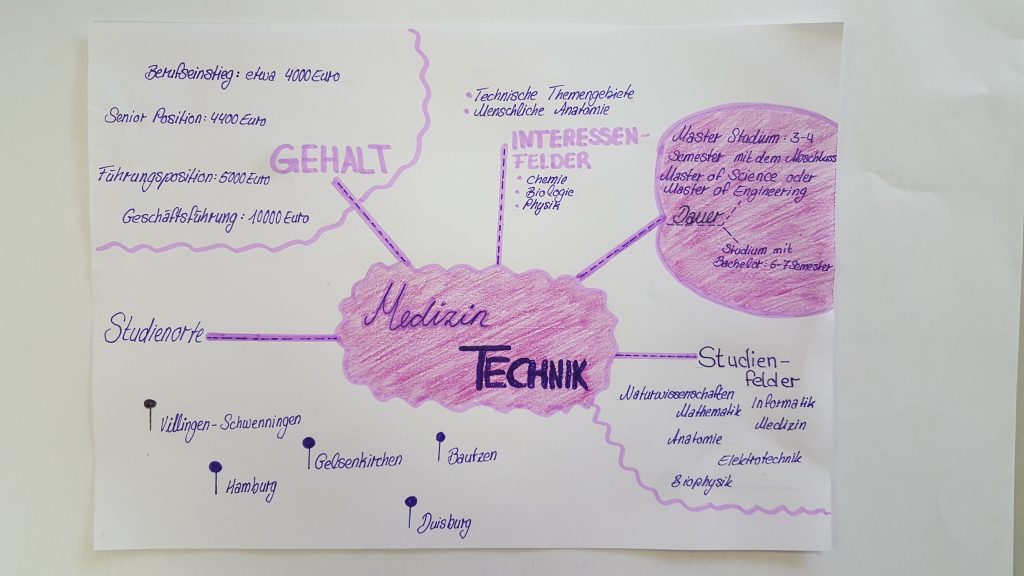 Berufseinstieg: etwa 4000 Euro
Senior Position: 4400 Euro
Führungsposition: 5000 Euro
Geschäftsführung: 10000 Euro
GEHALT
• Technische Themengebiete
• Menschliche Anatomie
INTERESSEN-
FELDER
• Chemie
• Biologie
• Physik
Master Studium: 3-4
Semester mit dem Abschluss
Master of Science oder
Master of Engineering
Dauer
Studium mit
Bachelor: 6-7 Semester
Medizin
TECHNIK
Studienorte
Villingen-Schwenningen
Hamburg
Gelsenkirchen
Bautzen
Duisburg
Studien-
felder
Naturwissenschaften
Mathematik
Informatik
Medizin
Anatomie
Elektrotechnik
Biophysik